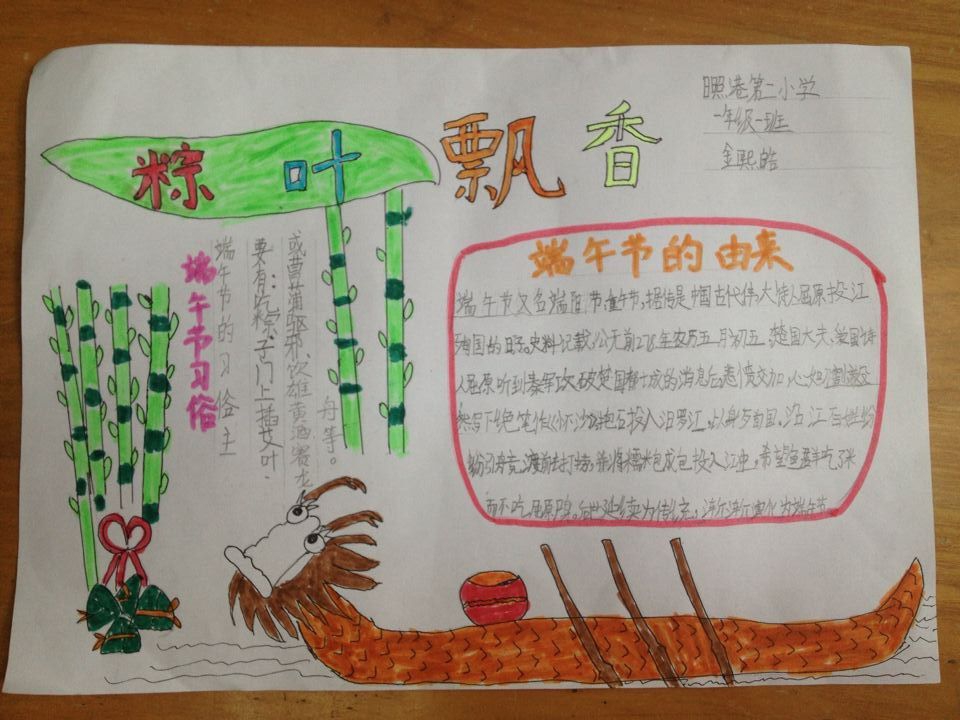 粽叶飘香
照港第二小学
一年级一班
金熙皓
端午节习俗
端午节的习俗主
要有:吃粽子,门上插艾叶,
或菖蒲驱邪,饮雄黄酒,赛龙
舟等。
端午节的由来
端午节又名端阳节,据传是中国古代伟大诗人屈原投江
殉国的日子。史料记载,公元前278年农历五月初五,楚国大夫、爱国诗
人屈原听到秦军攻破楚国都城的消息后,悲愤交加,心如刀割,毅
然写下绝笔作《怀沙》,抱石投入汨罗江,以身殉国。沿江百姓纷
纷引舟竞渡前去打捞,并将糯米包成包投入江中,希望鱼虾吃了米
而不吃屈原,后世延续为传统,渐渐演化为端午节